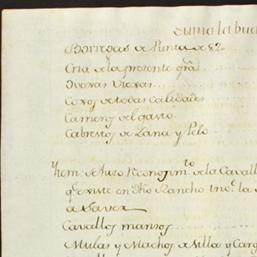 suma la bue
Borregas de Punta de 82
Cria de la presente gra
Ovejas Viejas
Coxos de todas calidades
Carneros del gasto
Cabrestos de Lana y Pelo
Yten se hizo Reconosim.to de la Cavall
q.e existe en dho Rancho
a Saver
Cavallos mansos
Mulas y Machos de silla y Carg